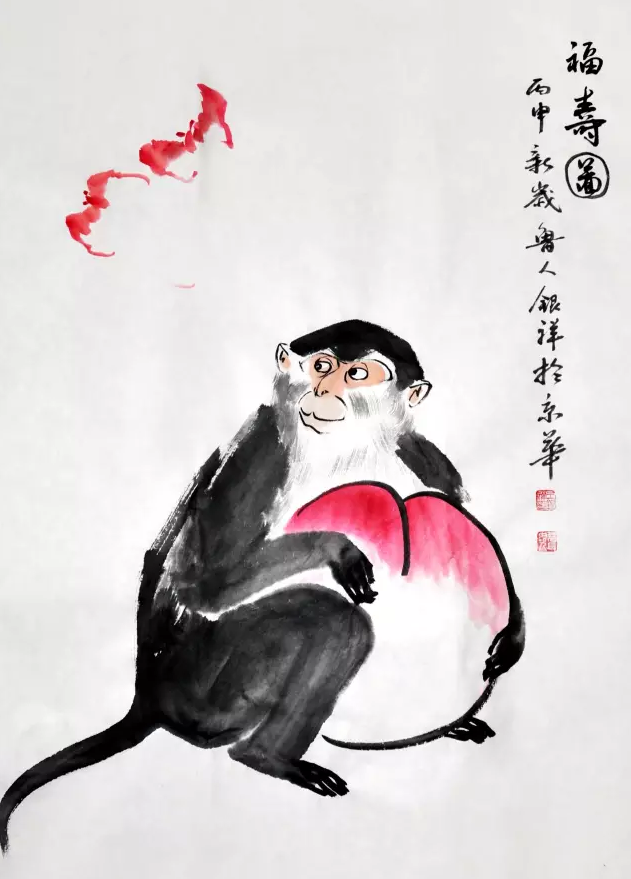 福壽圖
丙申新歲魯人銀祥於京華